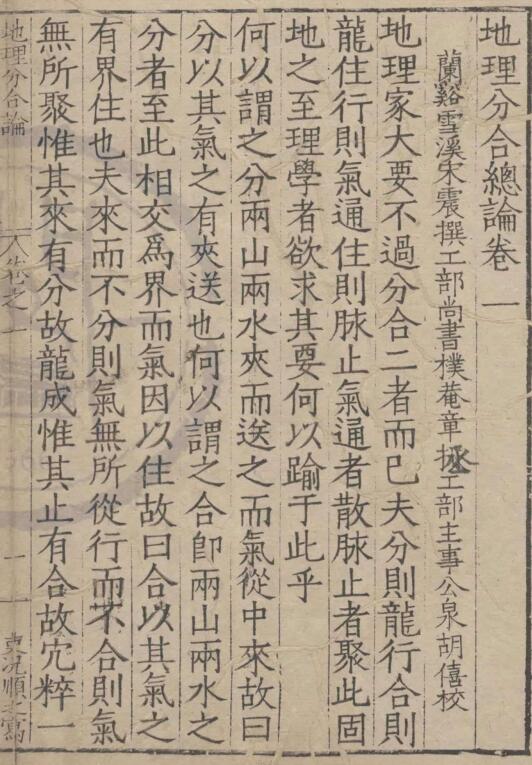 地理分合總論卷一
蘭谿雪溪宋震撰工部尚書樸菴章拯工部主事公泉胡僖校
地理家大要不過分合二者而已夫分則龍行合則
龍住行則氣通住則脉止氣通者散脉止者聚此固
地之至理學者欲求其要何以踰于此乎
何以謂之分兩山兩水夾而送之而氣從中來故曰
分以其氣之有夾送也何以謂之合卽兩山兩水之
分者至此相交爲界而氣因以住故曰合以其氣之
有界住也夫來而不分則氣無所從行而不合則氣
無所聚惟其來有分故龍成惟其止有合故穴粹一
地理分合論 卷之一 一 吏況順之寫